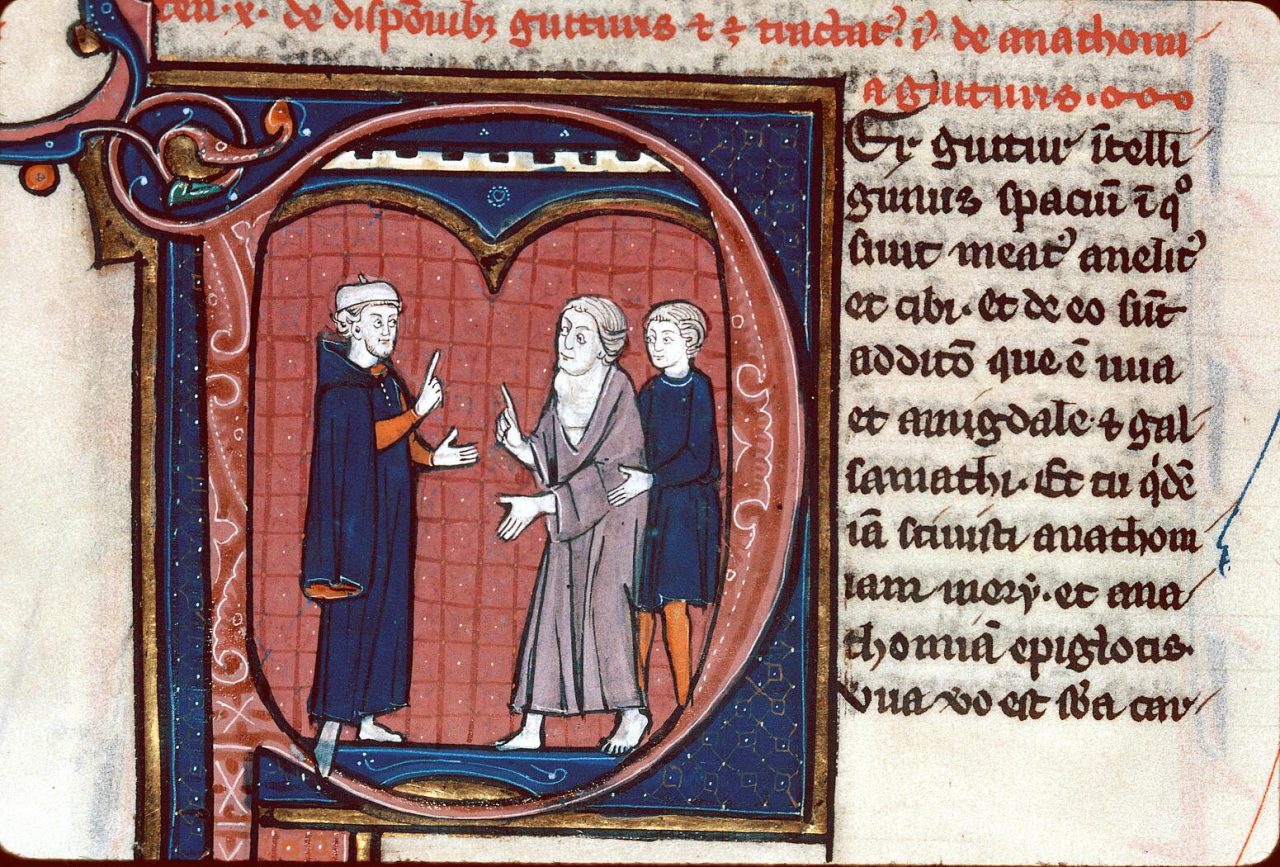 fen · x · de disponibꝫ gutturis et ē tractat᷒ · i᷒ · de anathomi
a gutturis ·
Er guttur ītelli
gimus spaciū ī qͦ
sunt meat᷒ anelit᷒
et cibi · Et de eo sūt
additō que ē uua
et amigdale · et gal
samathi · Et tu q'dē
iā sciuisti anathom
iam mery · et ana
thomiā epiglotis ·
vua vo est sb̄a car